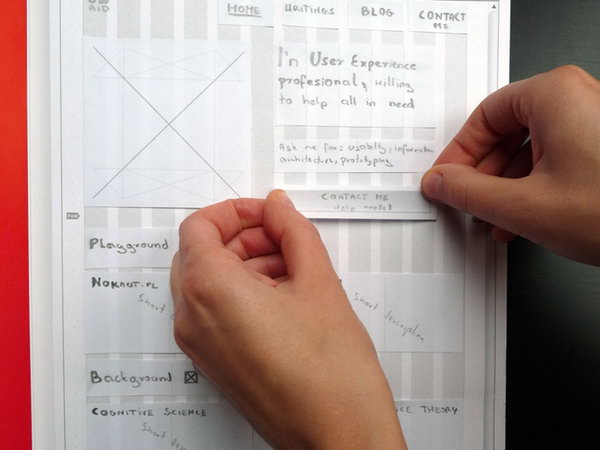 AID
HOME WRITINGS BLOG CONTACT
ME
I'm User Experience
profesional, willing
to help all in need
Ask me for: usability, information
architecture, prototyping
CONTACT ME
Help needed
Playground
NOKAUT.PL
Short
Short description
Background
COGNITIVE SCIENCE
THEORY
Short